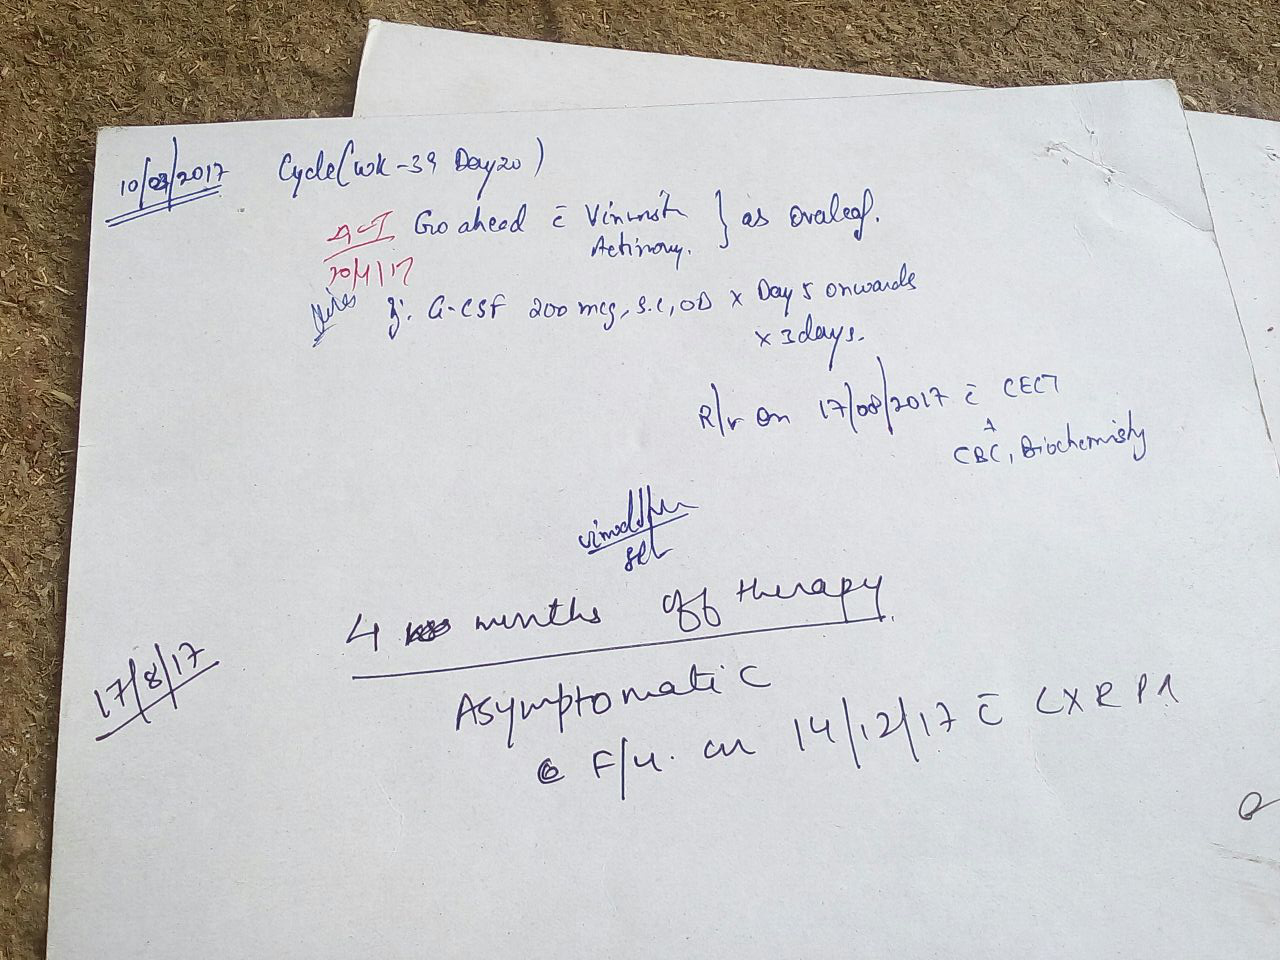 10/03/2017 Cycle (wk-39 Day 20)
Go ahead c̄ Vincrist } as overleaf.
Actinomy.
20/4/17
G-CSF 200 mcg, s.c, OD x Day 5 onwards
x 3 days.
R/v on 17/08/2017 c̄ CECT
CBC, Biochemistry
17/8/17
4 months off therapy
Asymptomatic
F/u. on 14/12/17 c̄ CXR PA